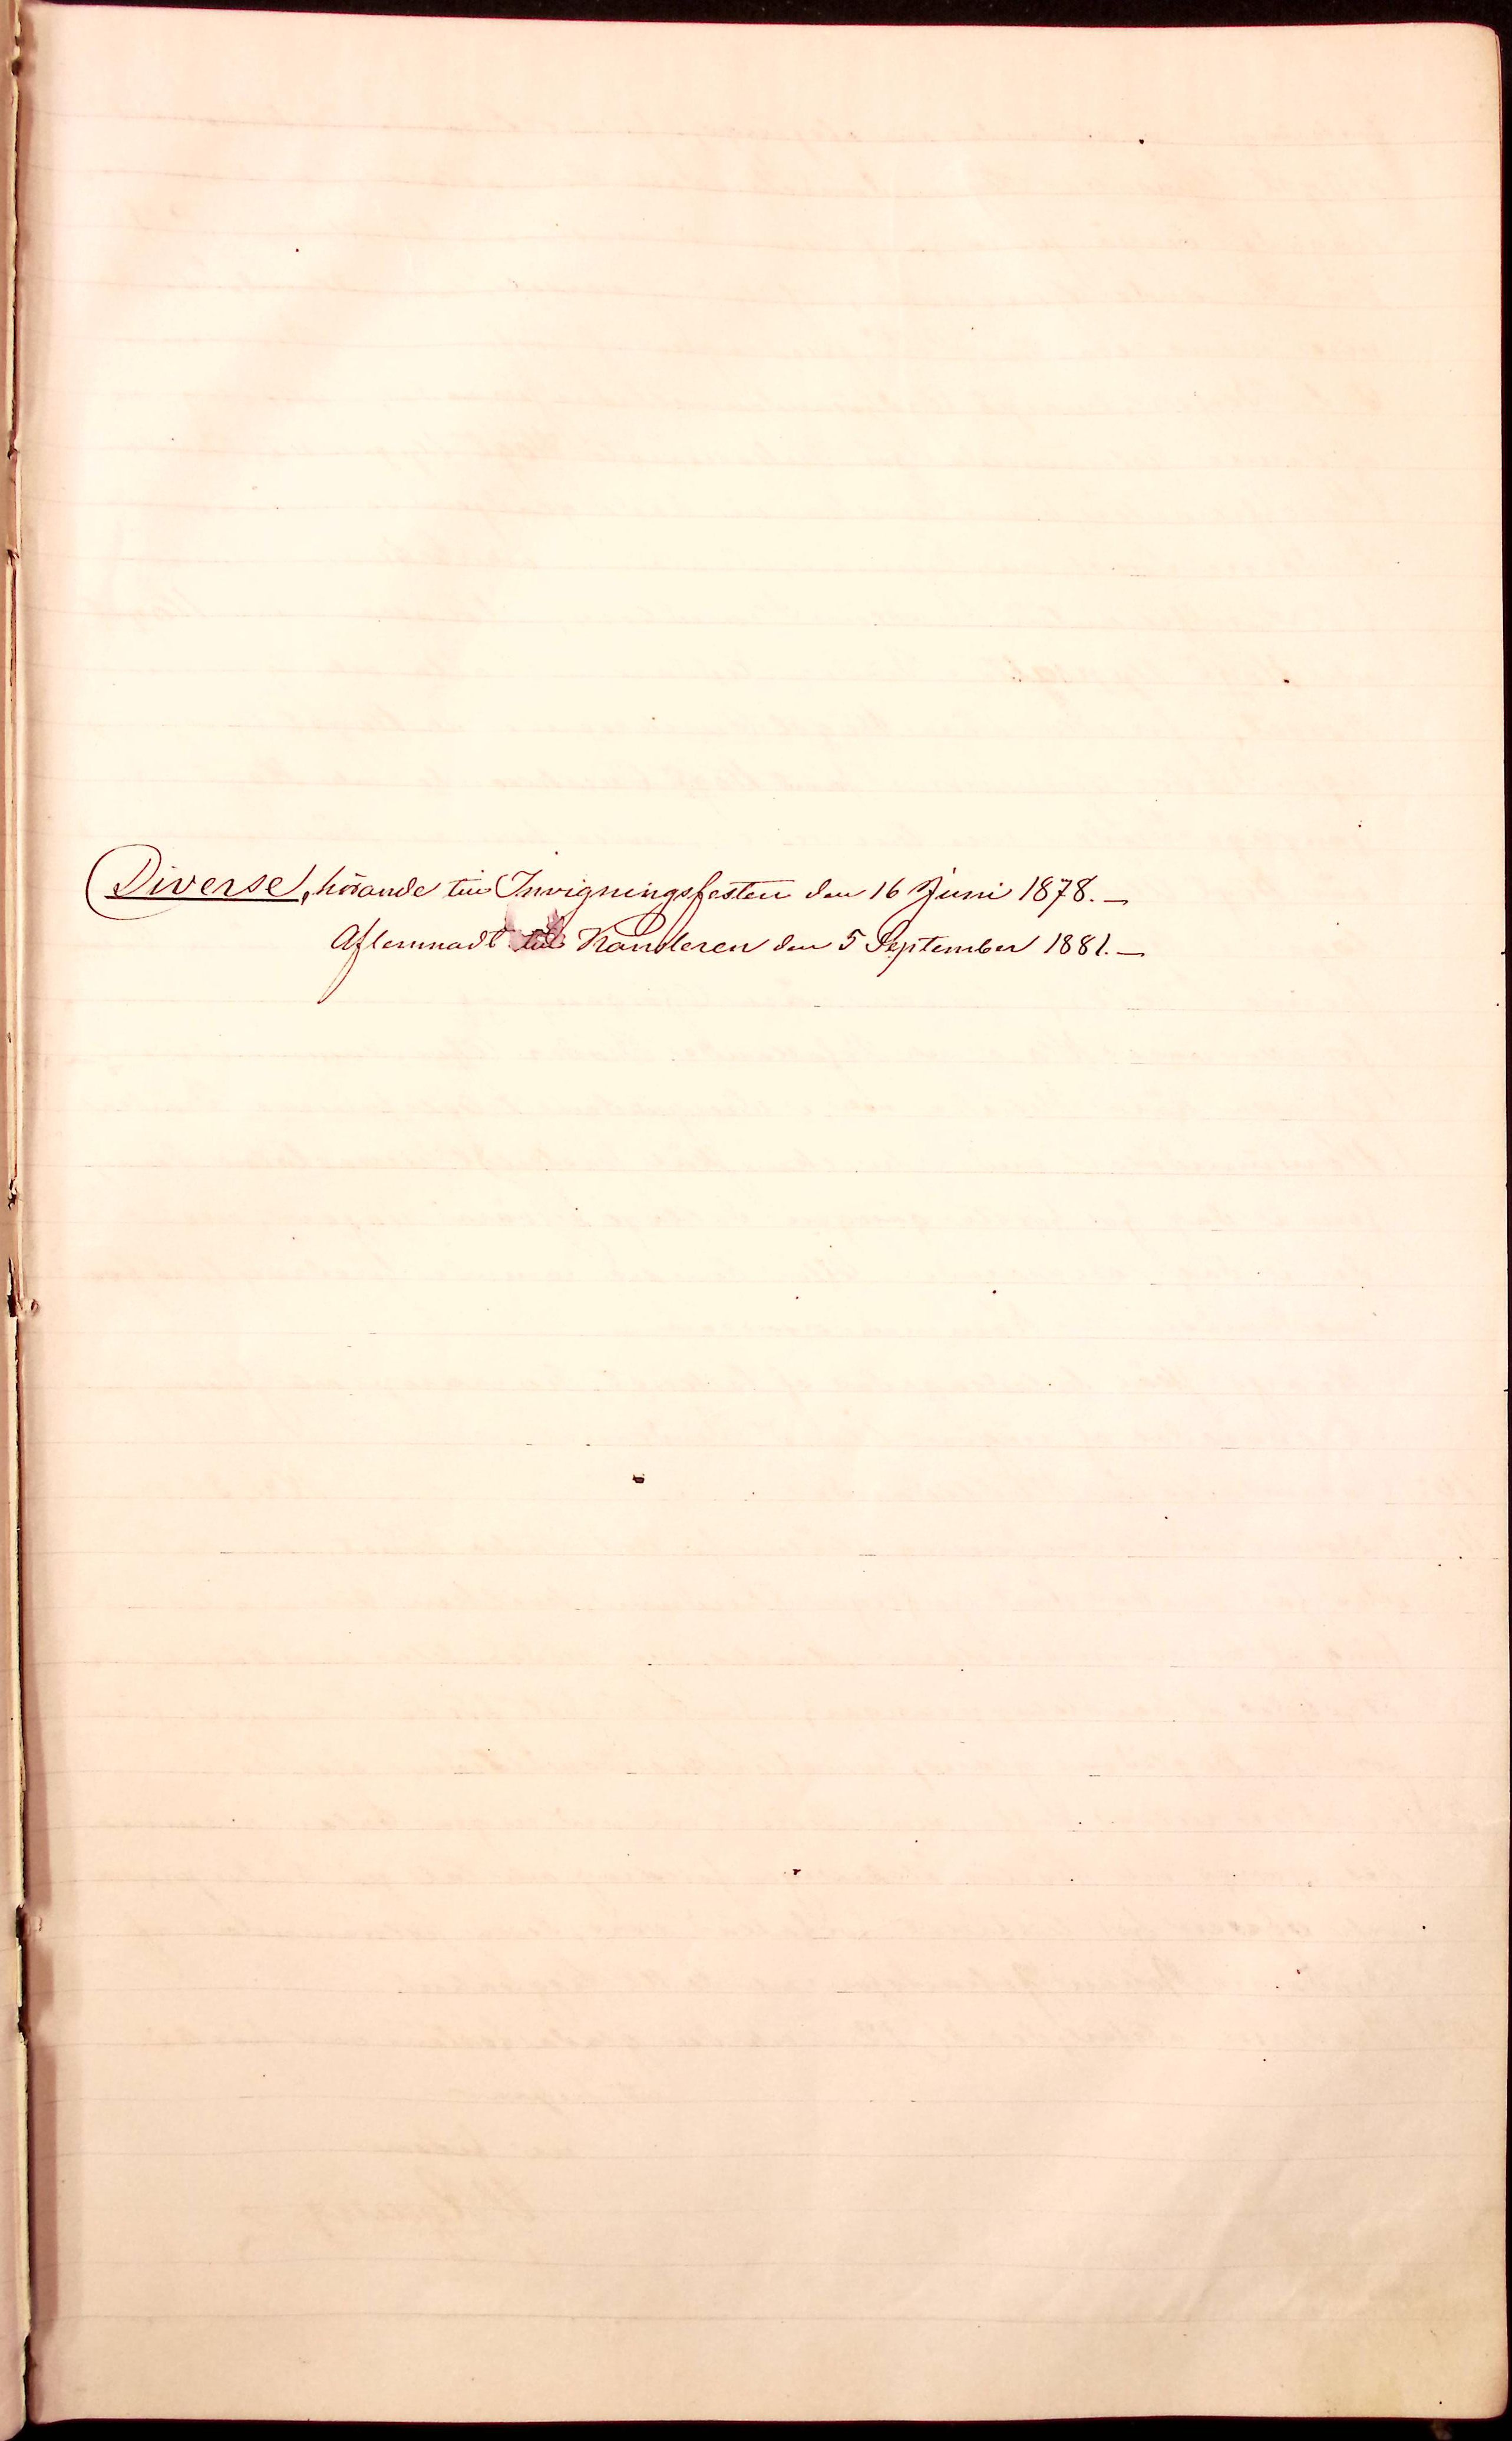 Diverse, hörande till Invigningsfesten den 16 Juni 1878. —
Aflemnadt till Kansleren den 5 September 1881. —